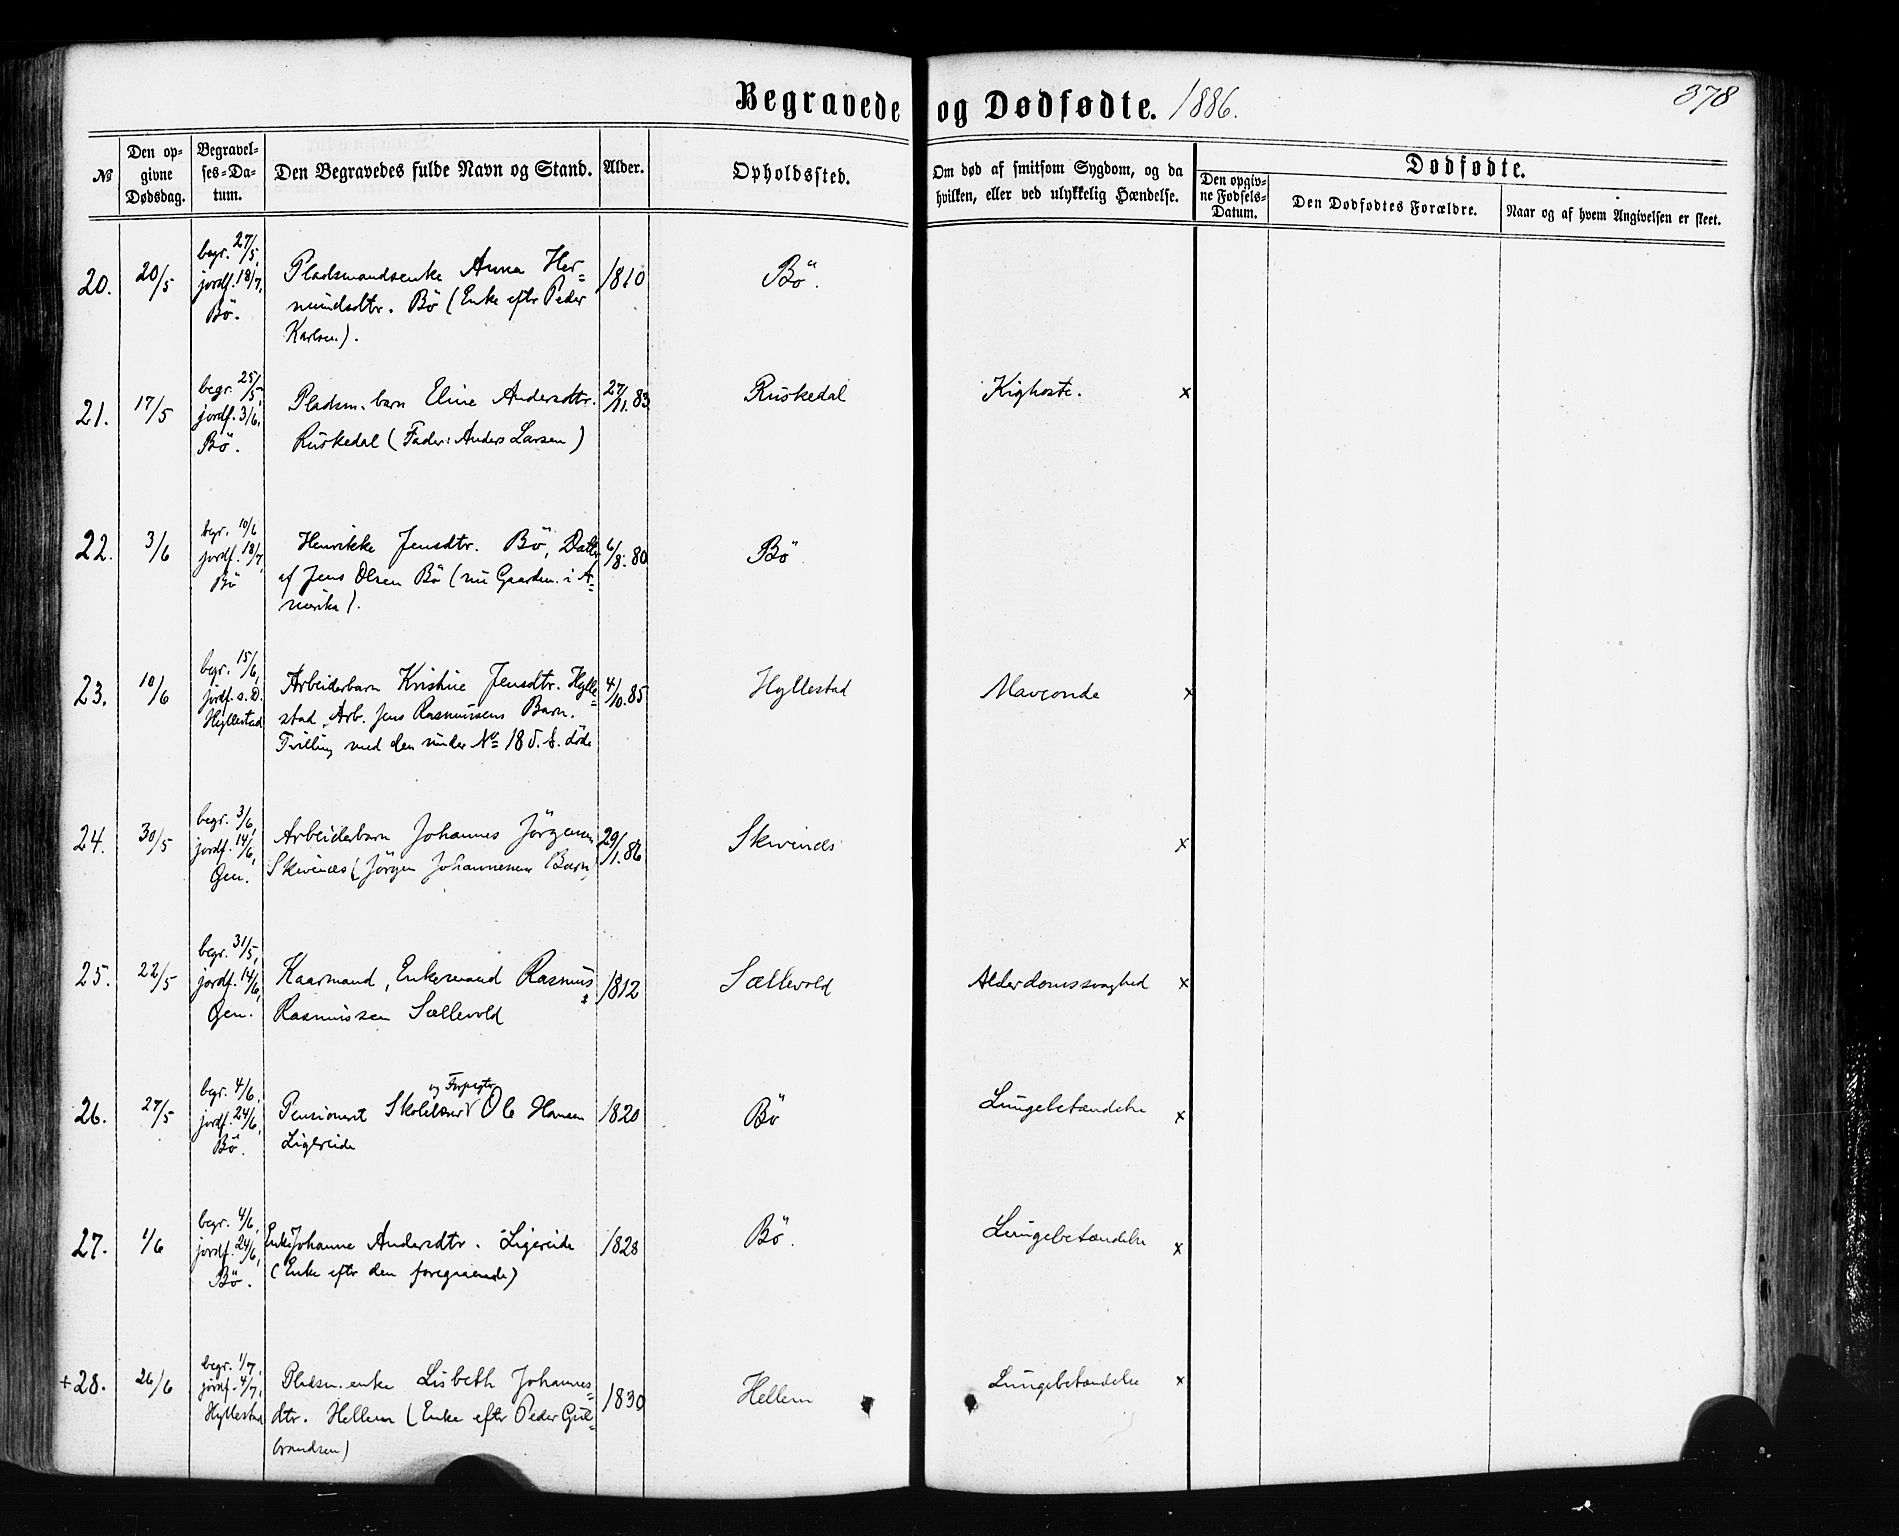 Begravede og Dødfødte. 1886.
378
№
Den op-
givne
Dødsdag.
Begravel-
ses-Da-
tum.
Den Begravedes fulde Navn og Stand.
Alder.
Opholdssted.
Om død af smitsom Sygdom, og da
hvilken, eller ved ulykkelig Hændelse.
Dødfødte.
Den opgiv-
ne Fødsels-
Datum.
Den Dødfødtes Forældre.
Naar og af hvem Angivelsen er skeet.
20.
20/5
begr. 27/5,
jordf. 18/7,
Bö.
Pladsmandsenke Anna Her-
mundsdtr. Bö (Enke eftr Peder
Karlsen).
1810
Bö.
21.
17/5
begr. 25/5,
jordf. 3/6,
Bö.
Pladsm. barn Eline Andersdtr.
Ruskedal (Fader: Anders Larsen)
27/11.83
Ruskedal
Kighoste.
x
22.
3/6
begr. 10/6
jordf. 18/7,
Bö
Henrikke Jensdtr. Bö, Datter
af Jens Olsen Bö (nu Gaardm. i A-
merika).
6/8.80
Bö
23.
10/6
begr. 15/6,
jordf. s.D.
Hyllestad
Arbeiderbarn Kristine Jensdtr. Hylle-
stad, Arb. Jens Rasmussens Barn.
Tvilling med den under № 18 d. s. döde
4/10.85
Hyllestad
Maveonde
x
24.
30/5
begr. 3/6,
jordf. 14/6,
Øen.
Arbeiderbarn Johannes Jörgensen
Skivenes (Jörgen Johannesens Barn)
29/1.86
Skivenes
x
25.
22/5
begr. 31/5,
jordf. 14/6,
Øen.
Kaarmand, Enkemand Rasmus
Rasmussen Sællevold
1812
Sællevold
Alderdomssvaghed
x
26.
27/5
begr. 4/6,
jordf. 24/6,
Bö.
og Forpagter
Pensioneret Skolelærer Ole Hansen
Ligereide
1820
Bö
Lungebetændelse
x
27.
1/6
begr. 4/6,
jordf. 24/6,
Bö.
Enke Johanne Andersdtr. Ligereide
(Enke eftr den foregaaende)
1828
Bö.
Lungebetændelse
x
+28.
26/6
begr. 1/7,
jordf. 4/7,
Hyllestad
Pladsm. enke Lisbeth Johannes-
dtr. Hellem (Enke eftr Peder Gul-
brandsen)
1830
Hellem
Lungebetændelse
x